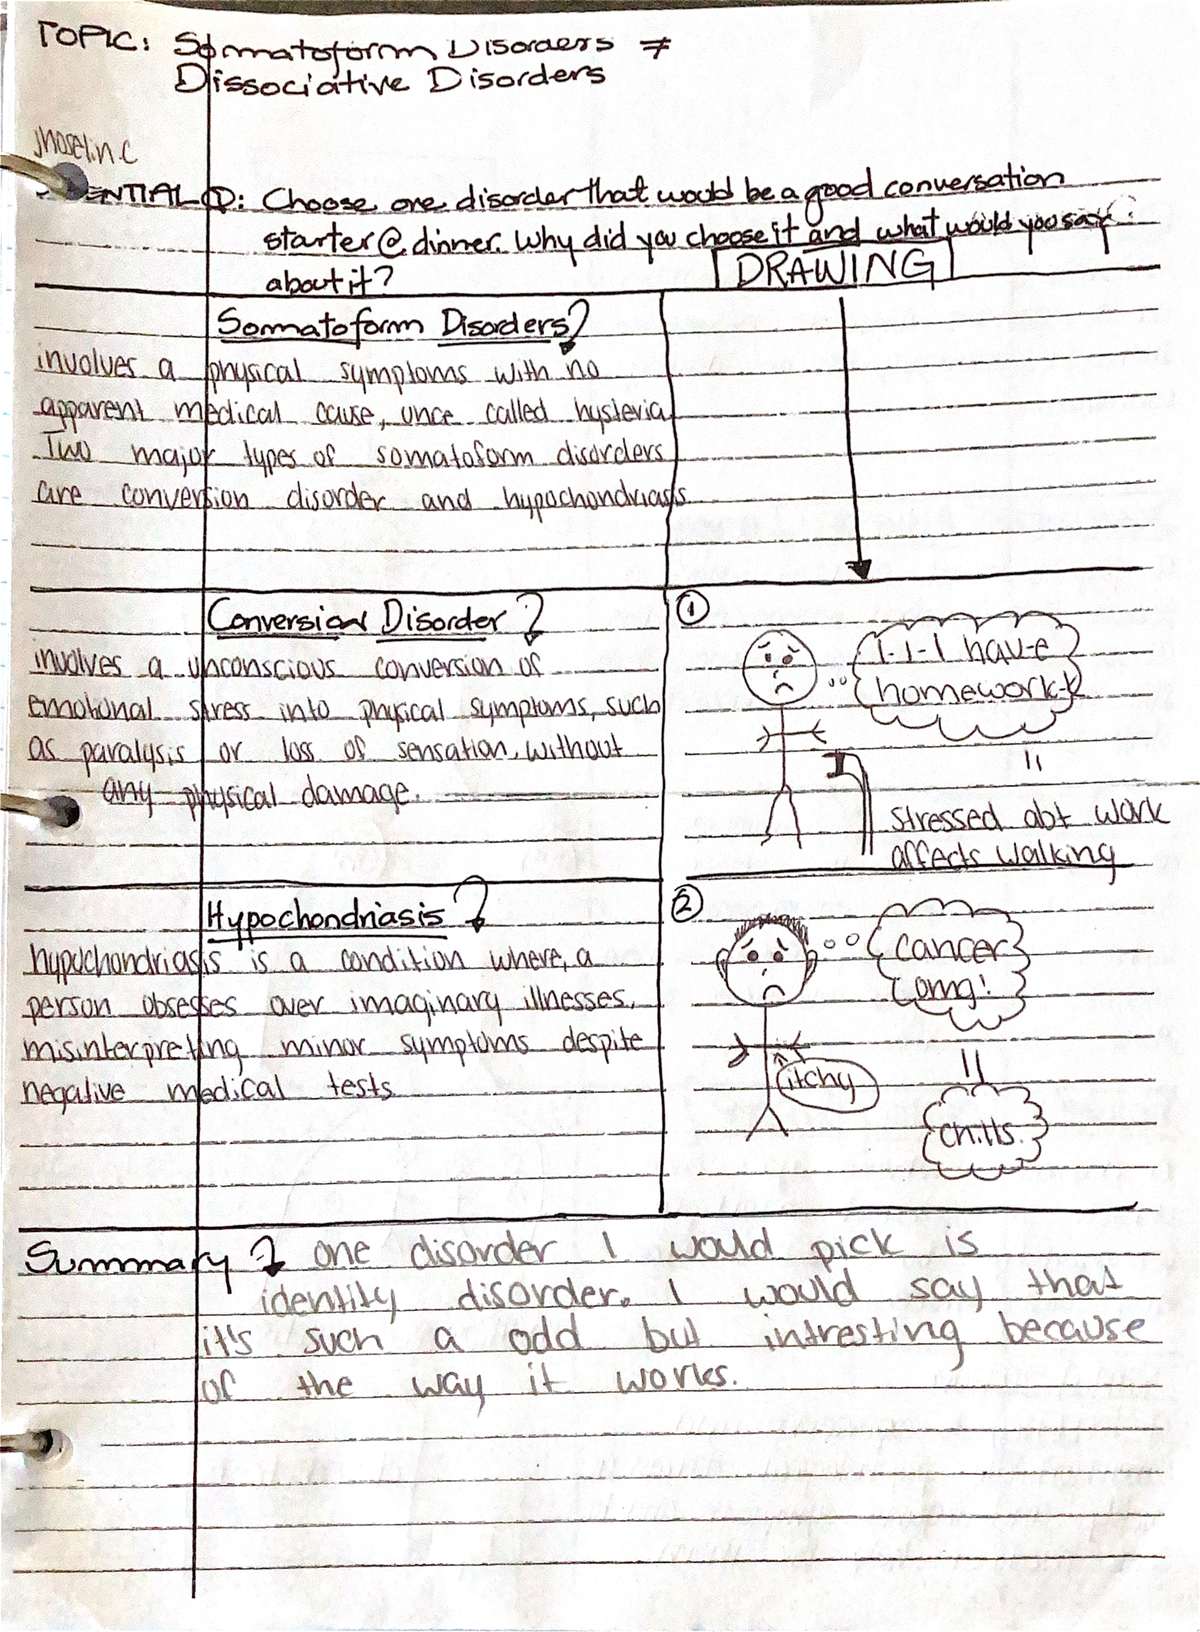 TOPIC: Somatoform Disorders ≠
Dissociative Disorders
Jhoselin C
ENTIAL Q: Choose one disorder that would be a good conversation
starter @ dinner. Why did you choose it and what would you say
about it?
DRAWING
Somatoform Disorders
involves a physical symptoms with no
apparent medical cause, once called hysteria
Two major types of somatoform disorders
are conversion disorder and hypochondriasis
Conversion Disorder
involves a unconscious conversion of
emotional stress into physical symptoms, such
as paralysis or loss of sensation, without
any physical damage.
1
I-I-I have
homework-k
=
stressed abt work
affects walking
Hypochondriasis
hypochondriasis is a condition where, a
person obsesses over imaginary illnesses,
misinterpreting minor symptoms despite
negative medical tests
2
cancer
omg!
itchy
=
chills.
Summary one disorder I would pick is
identity disorder. I would say that
it's such a odd but intresting because
of the way it works.